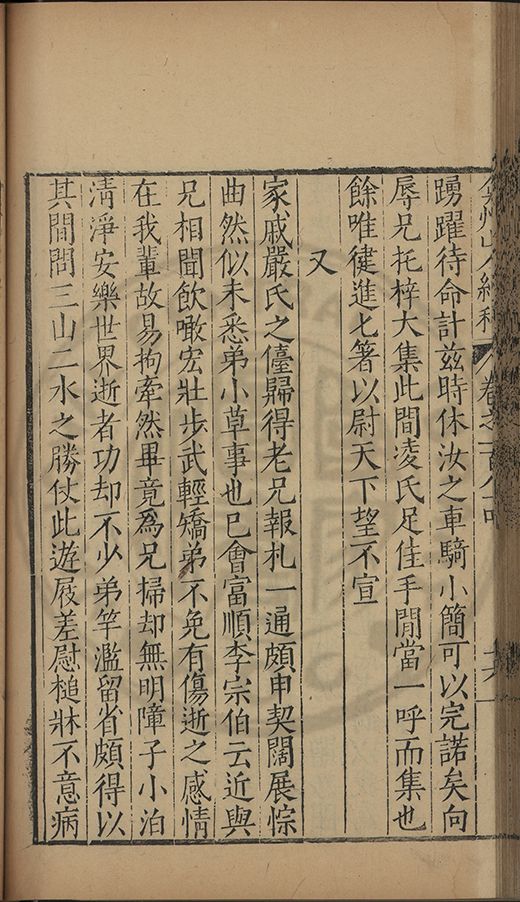 弇州山人續稿 卷之一百八十 
踴躍待命計兹時休汝之車騎小簡可以完諾矣向
辱兄托梓大集此間凌氏足佳手閒當一呼而集也
餘唯徤進匕箸以尉天下望不宣
又
家戚嚴氏之僮歸得老兄報札一通頗申契闊展悰
曲然似未悉弟小草事也已會富順李宗伯云近與
兄相聞飲噉宏壯步武輕矯弟不免有傷逝之感情
在我輩故易拘牽然畢竟爲兄掃却無明障子小泊
淸淨安樂世界逝者功却不少弟竿濫留省頗得以
其間問三山二水之勝仗此遊屐差慰槌牀不意病